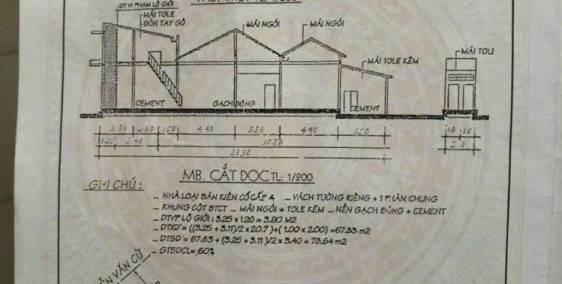 DTVP PHẠM LỘ GIỚI
MÁI TOLE
ĐÒN TAY GỖ
MÁI NGÓI
MÁI NGÓI
MÁI TOLE KẼM
MÁI TOLE
CEMENT
GẠCH BÔNG
CEMENT
4.40
4.40
MB. CẮT DỌC TL: 1/200
GHI CHÚ:
_ NHÀ LOẠI BÁN KIÊN CỐ CẤP 4 _ VÁCH TƯỜNG RIÊNG + 1 PHẦN CHUNG
_ KHUNG CỘT BTCT _ MÁI NGÓI + TOLE KẼM _ NỀN GẠCH BÔNG + CEMENT
_ DTVP LỘ GIỚI: 3.25 x 1.20 = 3.90 M2
_ DTXD = ((3.25 + 3.11)/2 x 20.7) + (1.00 x 2.00) = 67.83 m2
_ DTSD = 67.83 + (3.25 + 3.11)/2 x 3.40 = 78.64 m2
_ GTSDCL = 60%
VĂN CỪ